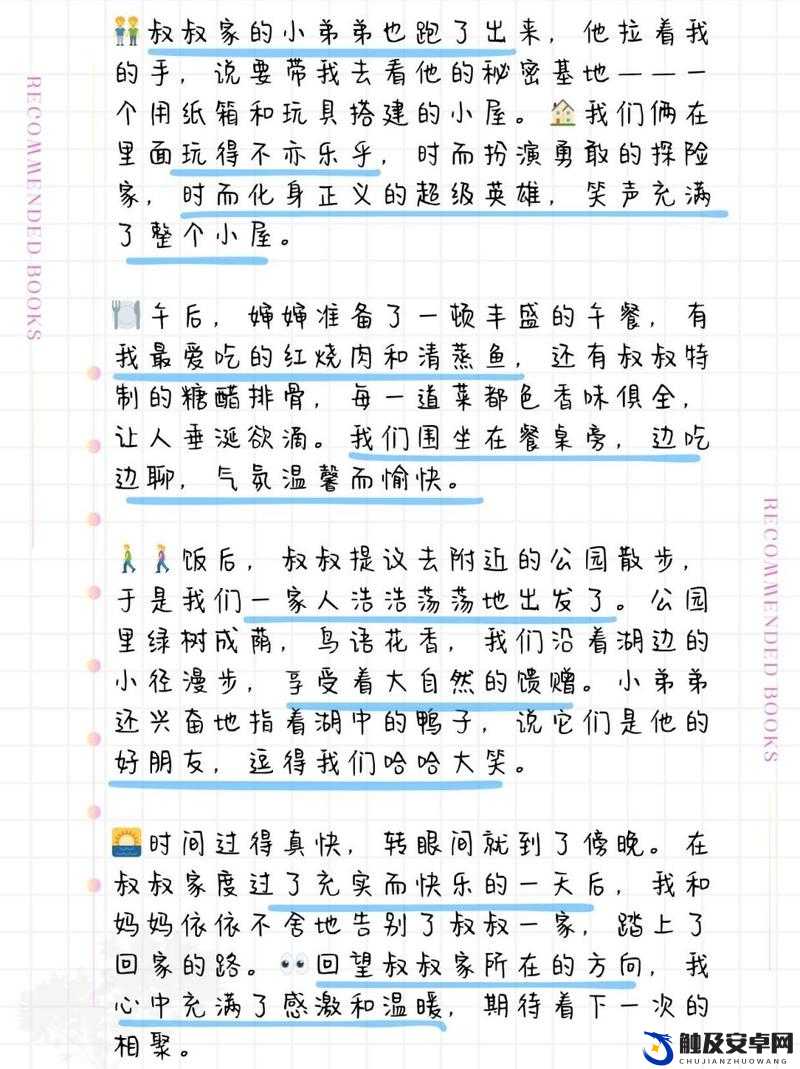 👬叔叔家的小弟弟也跑了出来，他拉着我
的手，说要带我去看他的秘密基地——一
个用纸箱和玩具搭建的小屋。🏠我们俩在
里面玩得不亦乐乎，时而扮演勇敢的探险
家，时而化身正义的超级英雄，笑声充满
了整个小屋。
🍽️午后，婶婶准备了一顿丰盛的午餐，有
我最爱吃的红烧肉和清蒸鱼，还有叔叔特
制的糖醋排骨，每一道菜都色香味俱全，
让人垂涎欲滴。我们围坐在餐桌旁，边吃
边聊，气氛温馨而愉快。
🚶🚶‍♀️饭后，叔叔提议去附近的公园散步，
于是我们一家人浩浩荡荡地出发了。公园
里绿树成荫，鸟语花香，我们沿着湖边的
小径漫步，享受着大自然的馈赠。小弟弟
还兴奋地指着湖中的鸭子，说它们是他的
好朋友，逗得我们哈哈大笑。
🌅时间过得真快，转眼间就到了傍晚。在
叔叔家度过了充实而快乐的一天后，我和
妈妈依依不舍地告别了叔叔一家，踏上了
回家的路。👀回望叔叔家所在的方向，我
心中充满了感激和温暖，期待着下一次的
相聚。
RECOMMENDED BOOKS
RECOMMENDED BOOKS
触及安卓网
CHUJIANZHUOWANG